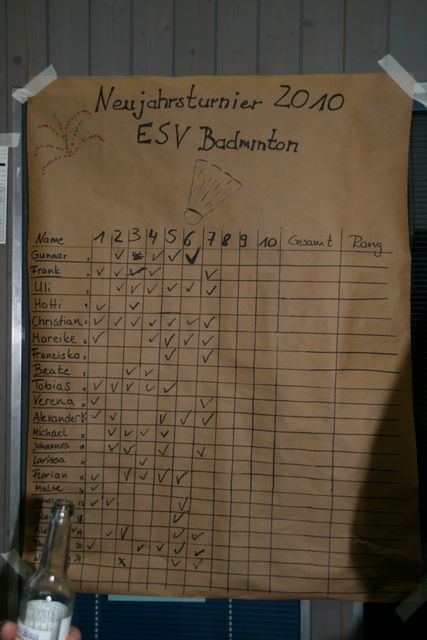 Neujahrsturnier 2010
ESV Badminton
Name 1 2 3 4 5 6 7 8 9 10 Gesamt Rang
Gunnar
Frank
Uli
Hotti
Christian
Mareike
Franziska
Beate
Tobias
Verena
Alexander
Michael
Johannes
Larissa
Florian
Malte